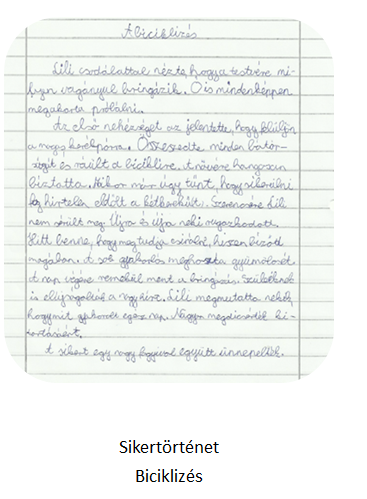 A biciklizés
Lili csodálattal nézte, hogy a testvére mi-
lyen vagányul bringázik. Ő is mindenképpen
meg akarta próbálni.
Az első nehézséget az jelentette, hogy felüljön
a nagy kerékpárra. Összeszedte minden bátor-
ságát és ráült a biciklire. A nővére hangosan
biztatta. Mikor már úgy tűnt, hogy sikerülni
fog hirtelen eldőlt a kétkerekű. Szerencsére Lili
nem sérült meg. Újra és újra neki rugaszkodott.
Hitt benne, hogy meg tudja csinálni, hiszen bízott
magában. A sok gyakorlás meghozta gyümölcsét.
A nap végére remekül ment a bringázás. Szüleiknek
is elújságolták a nagy hírt. Lili megmutatta nekik,
hogy mit gyakorolt egész nap. Nagyon megdicsérték ki-
tartásáért.
A sikert egy nagy fagyival együtt ünnepelték.
Sikertörténet
Biciklizés